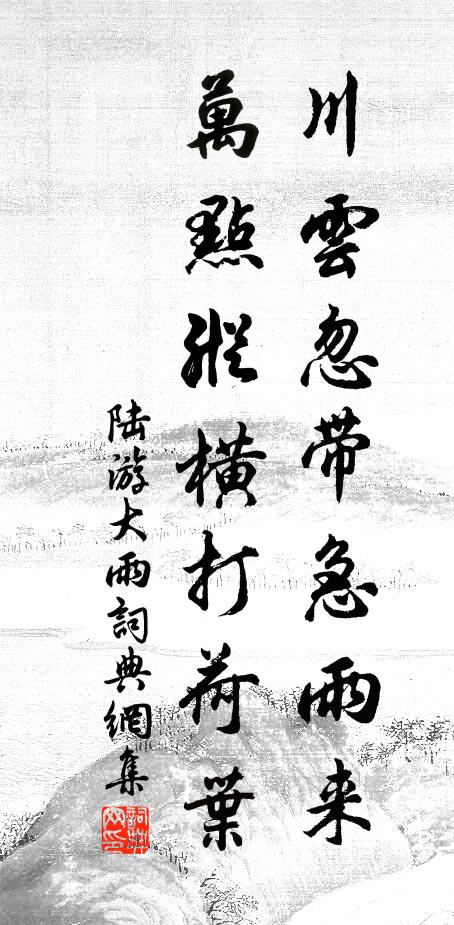 川雲忽帶急雨来
萬點縱橫打荷葉
陆游大雨詞典網集